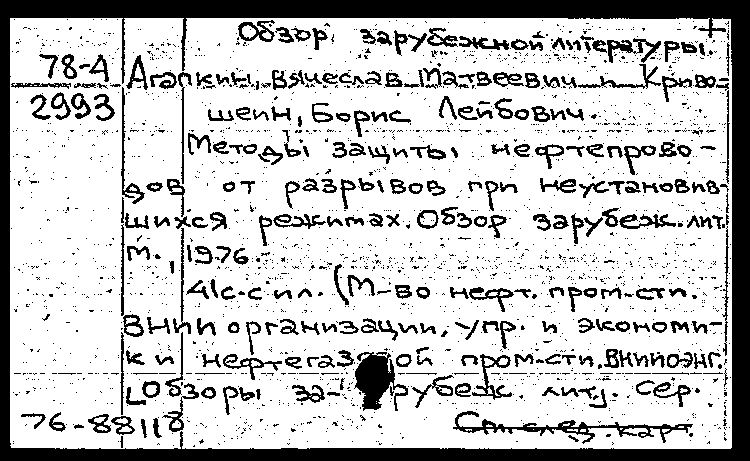 Обзор зарубежной литературы.
78-4 Агапкин, Вячеслав Матвеевич и Криво-
2993 шеин, Борис Лейбович.
Методы защиты нефтепрово-
дов от разрывов при неустановив-
шихся режимах. Обзор зарубеж. лит.
М., 1976.
41с. с ил. (М-во нефт. пром-сти.
ВНИИ организации, упр. и экономи-
ки нефтегазовой пром-сти. ВНИИОЭНГ.
Обзоры за- рубеж. лит). Сер.
76-88118 См. след. карт.